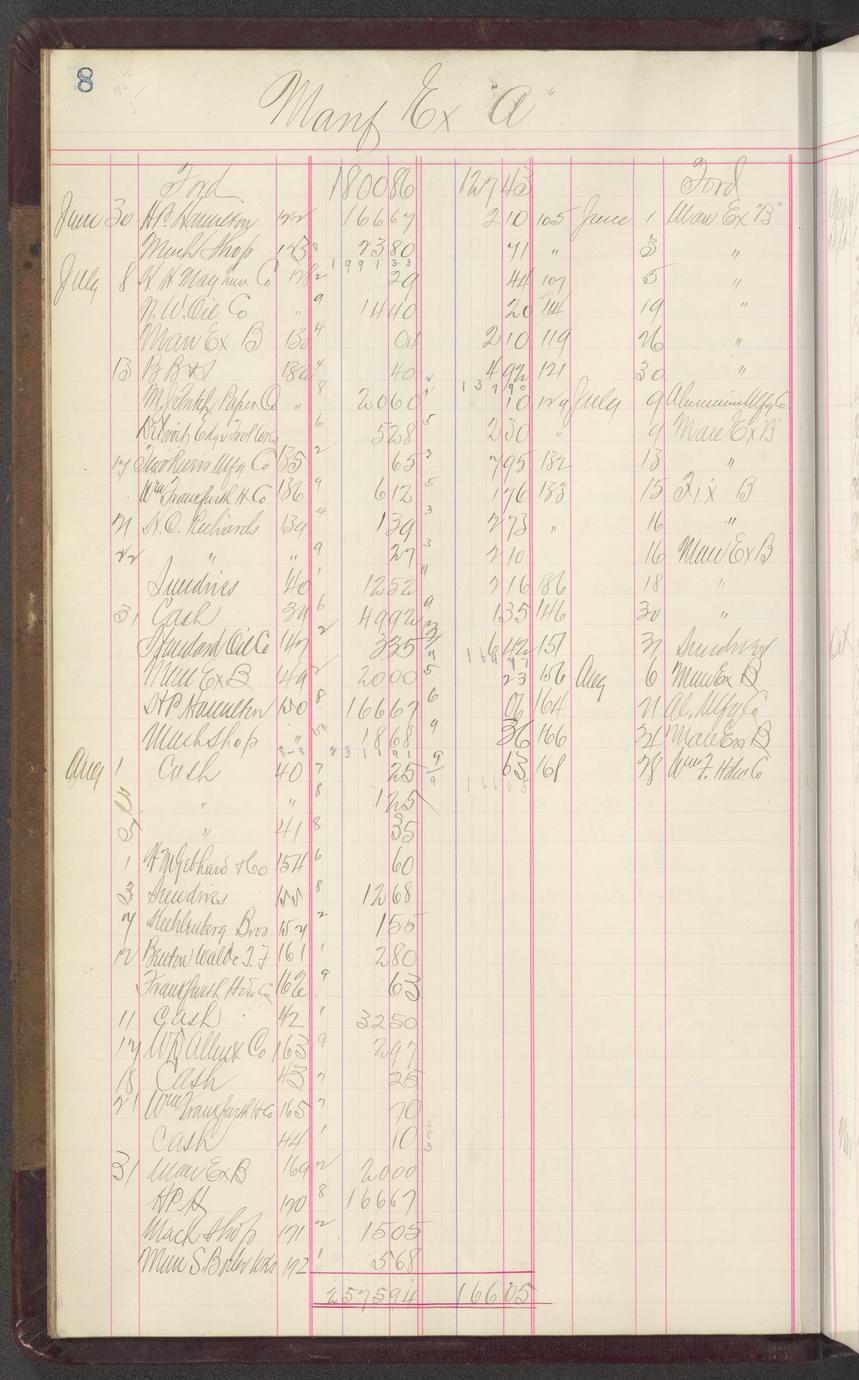 8
Manf Ex "A"
Ford 180086 12743 Ford
June 30 H.P. Hamilton 122 16667 210 105 June 1 Man Ex "B"
Mach Shop 123 8 2380 71 " 3 "
1991 33
July 8 128 2 29 44 107 5 "
N.W. Oil Co " 9 1440 20 114 19 "
Man Ex B 130 4 01 210 119 26 "
13 B B & S 132 4 40 492 121 30 "
13790
Paper Co " 8 2060 10 129 July 9 Aluminum Mfg Co
Detroit Edge Tool Works 6 528 5 230 " 9 Man Ex "B"
17 Two Rivers Mfg Co 135 2 65 3 795 132 13 "
Wm Frankfurth H Co 136 9 612 5 176 133 15 Fix B
21 H.C. Richards 139 4 139 3 273 " 16 "
22 " " 9 27 3 210 16 Man Ex B
Sundries 140 1 1252 9 216 136 18 "
31 Cash 39 6 4992 9 135 146 30 "
Standard Oil Co 147 2 335 642 151 31 Sundries
Man Ex B 149 2 2000 5 23 156 Aug 6 Man Ex B
H.P. Hamilton 150 8 16667 6 06 164 21 Al. Mfg Co
Mach Shop " 1868 9 36 166 24 Man Ex B
231191
Aug 1 Cash 40 7 25 63 168 28 Wm F. Hdw Co
16605
" " 8 125
5 " 41 8 35
1 H M Gebhard & Co 154 6 60
3 Sundries 155 8 1268
7 Bros 157 2 155
12 161 1 280
Frankfurth Hdw Co 162 9 63
11 Cash 42 1 3250
17 Co 163 9 297
18 Cash 43 7 25
21 Wm Frankfurth H Co 165 7 70
Cash 44 1 10
31 Man Ex B 169 2 2000
H P H 170 8 16667
Mach Shop 171 2 1505
S. Boiler Wks 172 1 568
257594 16605